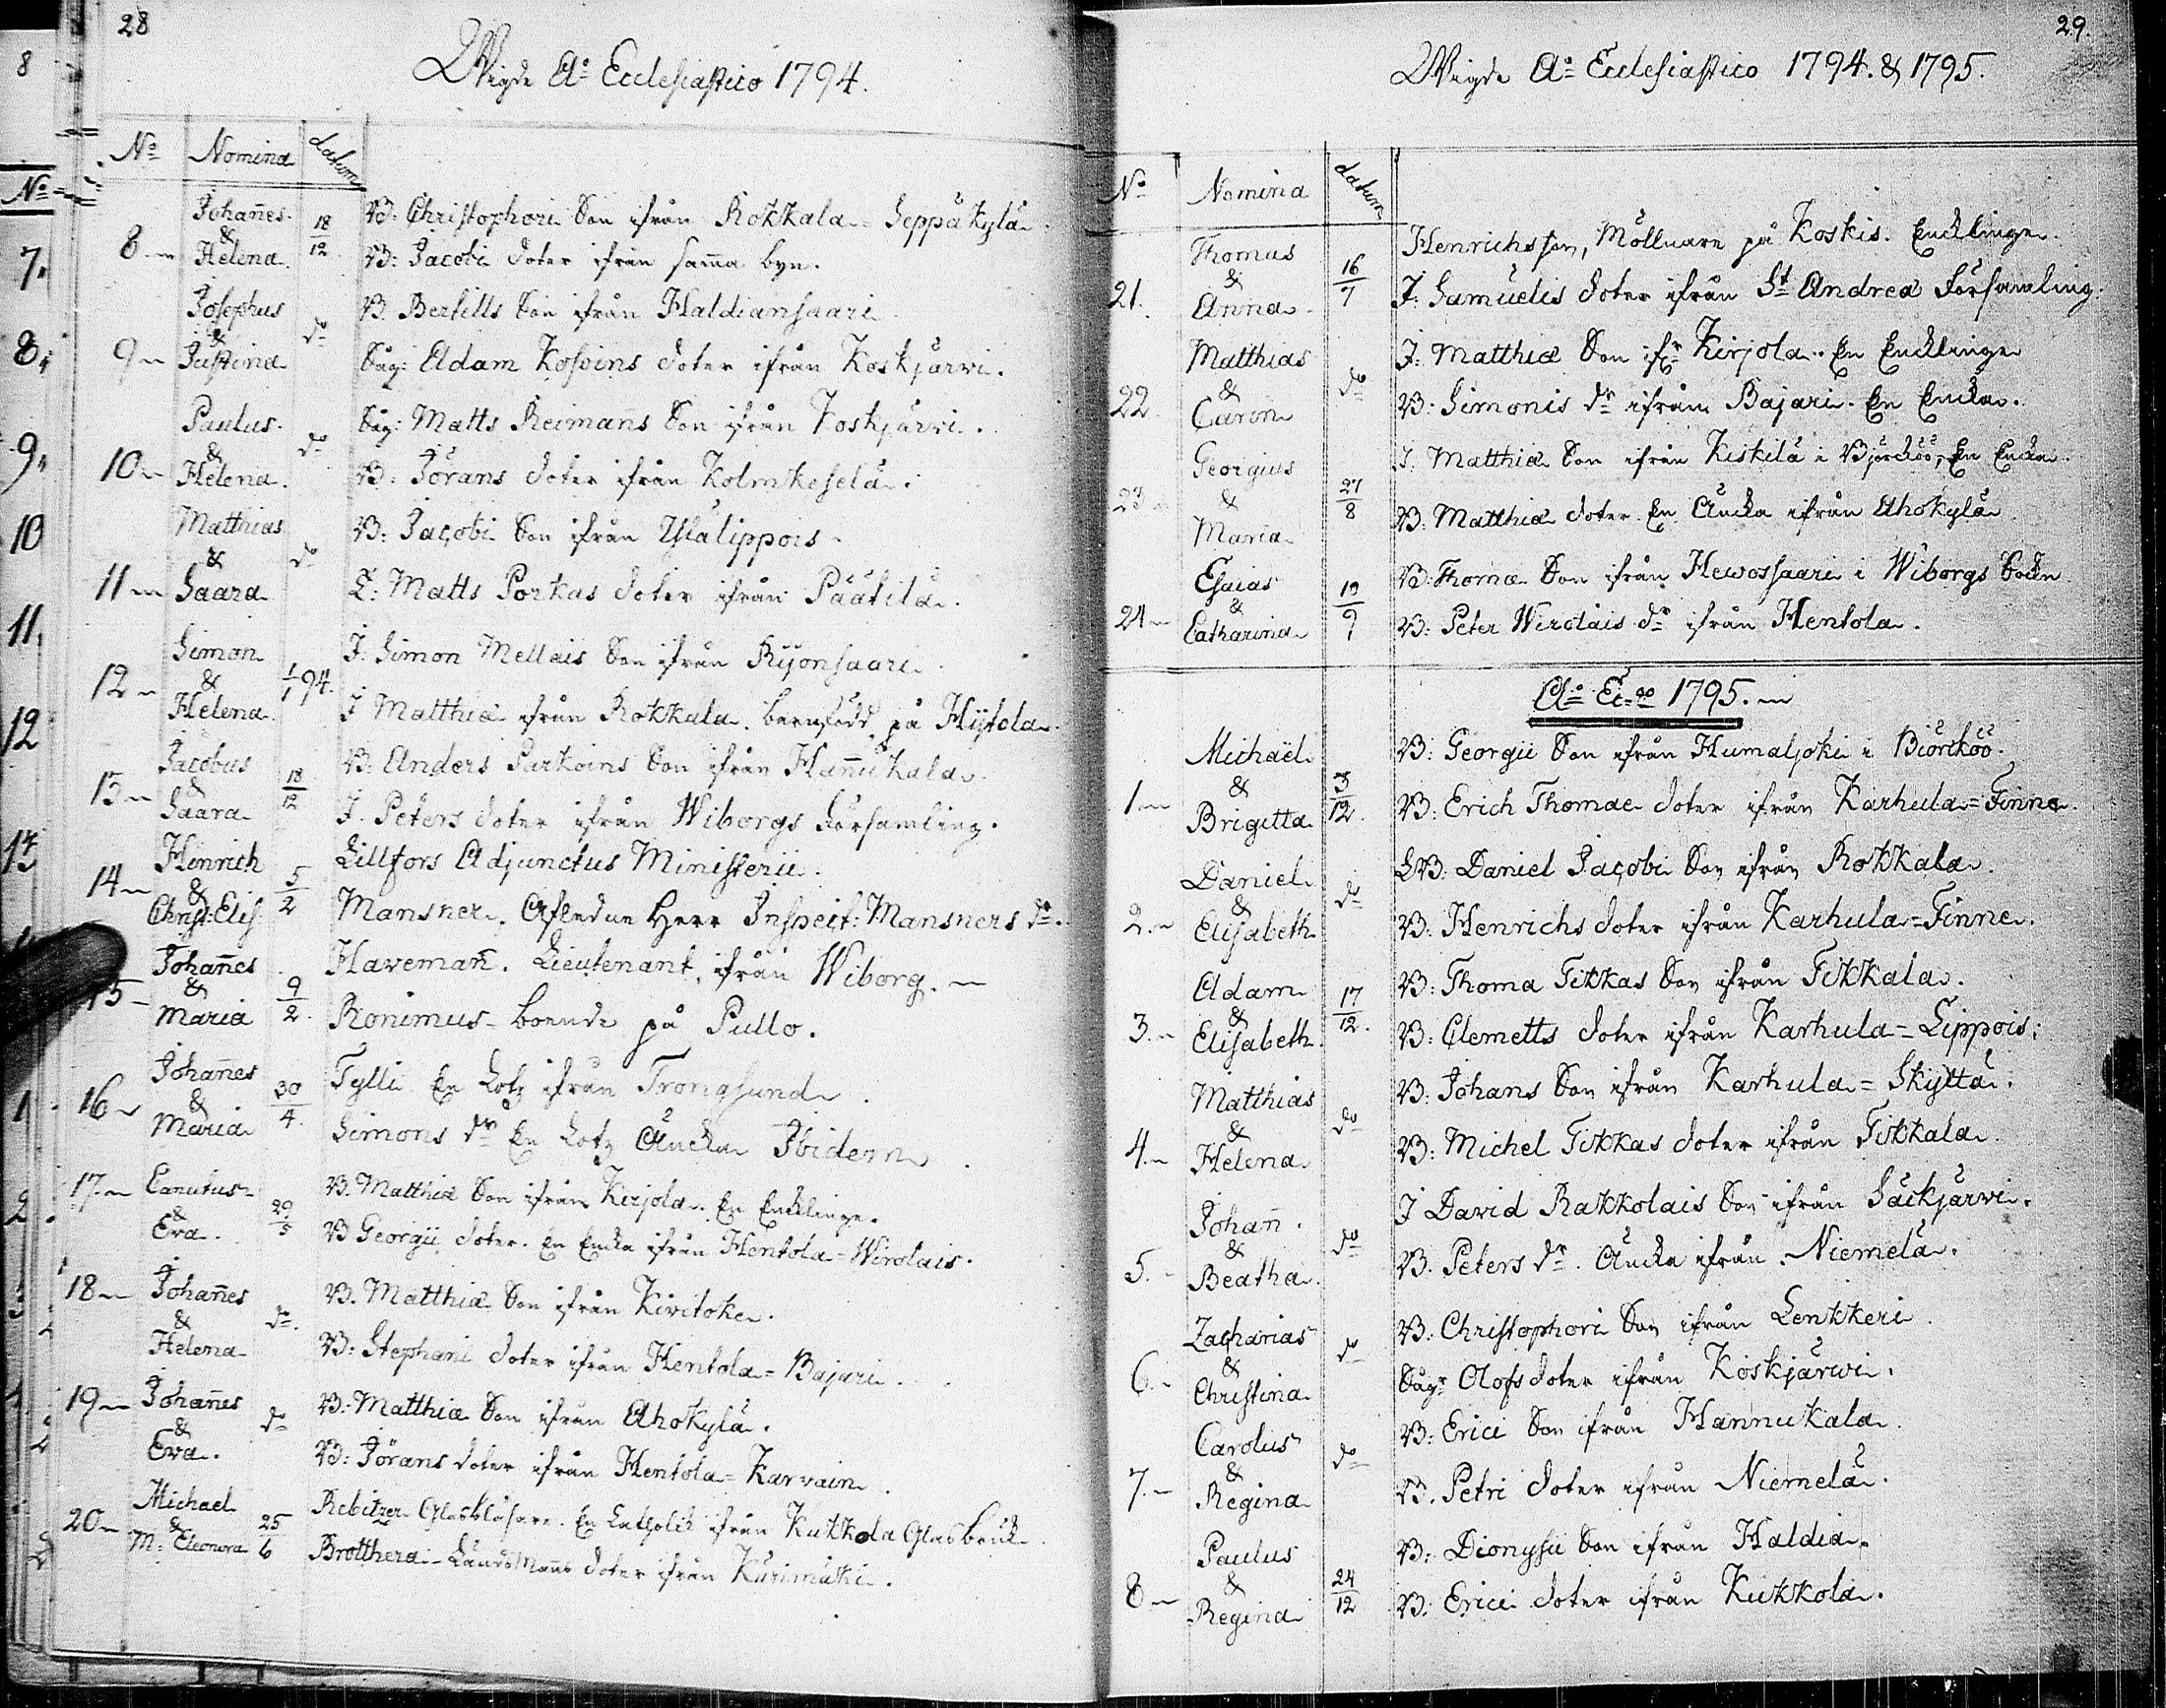 28
Wigde Ao Ecclesiastico 1794.
No Nomina datum
8 Johañes & Helena 18/12
B: Christophori Son ifrån Rokkala-Seppäkylä
B: Jacobi doter ifrån samma byn.
9 Josephus & Justina do
B. Bertills Son ifrån Haldiansaari
Säg: Adam Kossins doter ifrån Koskjärwi.
10 Paulus & Helena do
Säg: Matts Reimañs Son ifrån Koskjärwi.
B: Jörans doter ifrån Kolmkeselä.
11 Matthias & Saara do
B: Jacobi Son ifrån
I: Matts Porkas doter ifrån Päätilä.
12 Simon & Helena 1/1 94.
I. Simon Mellais Son ifrån Ryönsaari
I Matthiæ ifrån Rokkala på Hÿtola
13 Jacobus & Saara 18/12
B: Anders Parkoins Son ifrån Hañukala
I. Peters doter ifrån Wiborgs Församling.
14 Hinrich & Christ: Elis 5/2
Lillfors Adjunctus Ministerii.
Mansner. Afledne Herr Inspect: Mansners dr.
15 Johañes & Maria 9/2.
Havemañ. Lieutenant, ifrån Wiborg.
Ronimus boende på Pullo.
16 Johañes & Maria 30/4.
Tylli En Lots ifrån Trongsund
Simons dr En Lots Äncka Ibidem
17. Canutus & Eva 29/5
B. Matthiæ Son ifrån Kirjola. En Encklinge.
B Georgii doter. En Encka ifrån Hentola-Wirolais.
18 Johañes & Helena do.
B. Matthiæ Son ifrån Kivitoke.
B: Stephani doter ifrån Hentola-Bajari.
19 Johañes & Eva. do
B: Matthiæ Son ifrån Ahokylä.
B: Jörans doter ifrån Hentola-Karvain.
20 Michael & M: Eleonora 25/6
Rebitzer Glasblåsare. En Catholik ifrån Kukkola Glasbruk
Brotthera Landsmans doter ifrån Kurimäki.
29.
Wigde Ao Ecclesiastico 1794. & 1795.
No Nomina datum
21. Thomas & Anna 16/7
Henrichsson, Möllnare på Koskis. Encklinge
I: Samuelis doter ifrån St Andreæ Församling.
22. Matthias & Carön do
I: Matthiæ Son ifr Kirjola. En Encklinge
B: Simonis dr ifrån Bajari. En Encka.
23 Georgius & Maria 27/8
I. Matthiæ Son ifrån Kiskilä i Björcköö, En Encka
B: Matthiæ doter En Äncka ifrån Ahokylä
24 Esaias & Catharina 19/9
B: Thomæ Son ifrån Hewossaari i Wiborgs Sockn
B: Peter Wirolais dr ifrån Hentola.
Ao Ec=co 1795.
1 Michaël & Brigitta 3/12.
B: Georgii Son ifrån Humaljoki i Biörcköö.
B: Erich Thomae doter ifrån Karhula=Finne.
2. Daniel & Elisabeth do
LB: Daniel Jacobi Son ifrån Rokkala.
B: Henrichs doter ifrån Karhula=Finne.
3. Adam & Elisabeth 17/12.
B: Thoma Tikkas Son ifrån Tikkala.
B: Clemetts doter ifrån Karhula=Lippois:
4. Matthias & Helena do
B: Johans Son ifrån Karhula=Skyttä.
B: Michel Tikkas doter ifrån Tikkala.
5. Johañ. & Beatha do
I David Rakkolais Son ifrån Säckjärwi.
B. Peters dr. Äncka ifrån Niemelä.
6. Zacharias & Christina do
B: Christophori Son ifrån Lenkkeri
Sägr Olofs doter ifrån Koskjärwi.
7. Carolus & Regina do
B: Erici Son ifrån Hannukala.
B. Petri doter ifrån Niemelä.
8 Paulus & Regina 24/12
B: Dionysii Son ifrån Haldia.
B: Erici doter ifrån Kukkola.
8
No
7.
8.
9.
10
11.
12